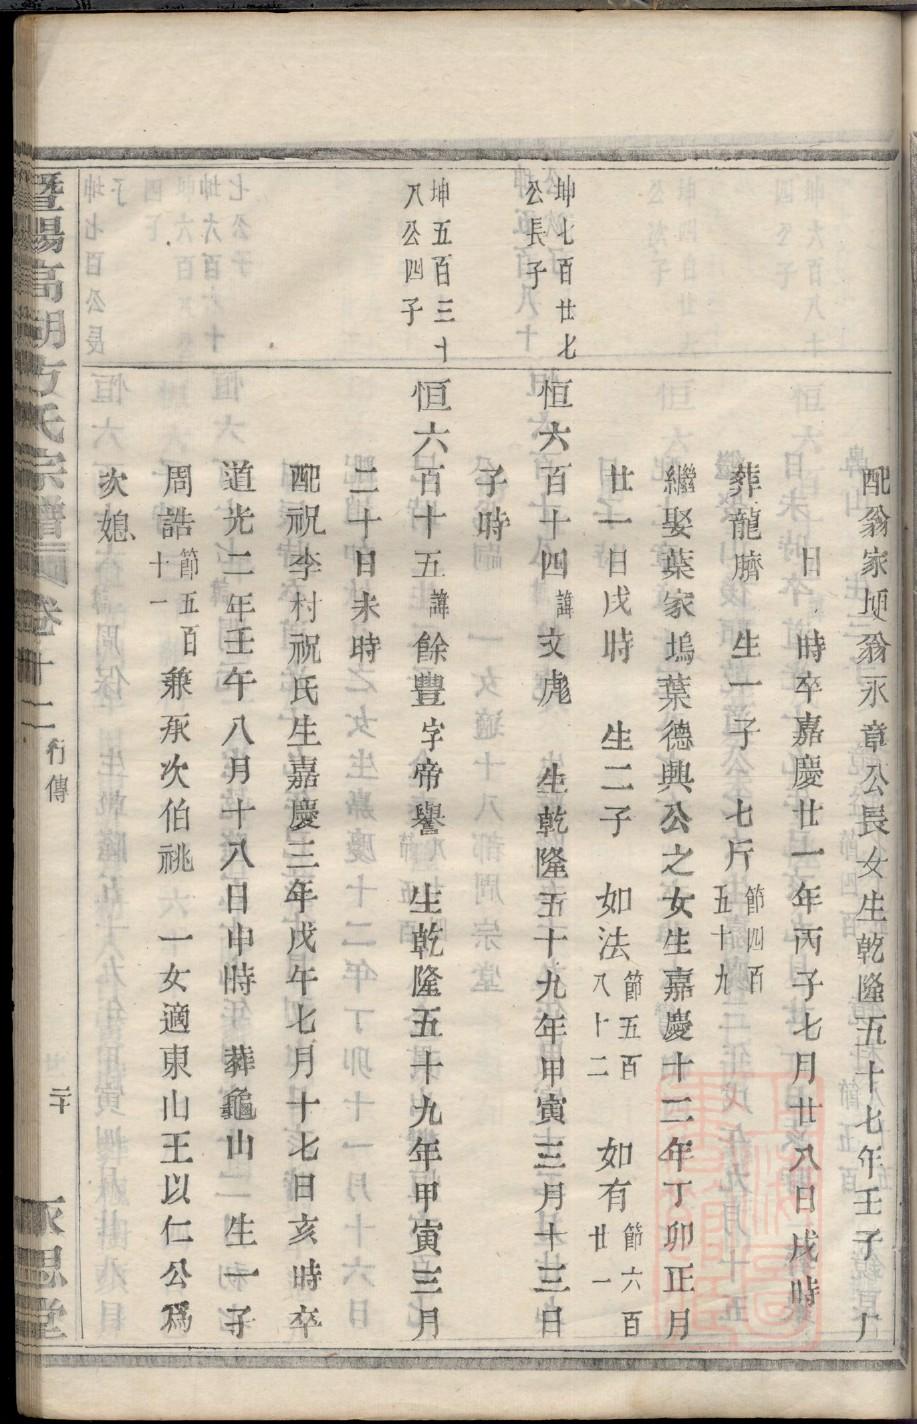 配翁家埂翁永章公長女生乾隆五十七年壬子
日 時卒嘉慶廿一年丙子七月廿八日戌時
葬龍臍 生一子 七斤節四百五十九
繼娶葉家塢葉德興公之女生嘉慶十二年丁卯正月
廿一日戌時 生二子 如法節五百八十二 如有節六百廿一
坤七百廿七公長子
恒六百十四諱文彪 生乾隆五十九年甲寅三月十三日
子時
坤五百三十八公四子
恒六百十五諱餘豐字帝譽 生乾隆五十九年甲寅三月
二十日未時
配祝李村祝氏生嘉慶三年戊午七月十七日亥時卒
道光二年壬午八月十八日申時 葬龜山 生一子
周誥節五百十一 兼承次伯祧 一女適東山王以仁公爲
次媳
暨陽高湖方氏宗譜 卷十二 行傳 二十 永思堂